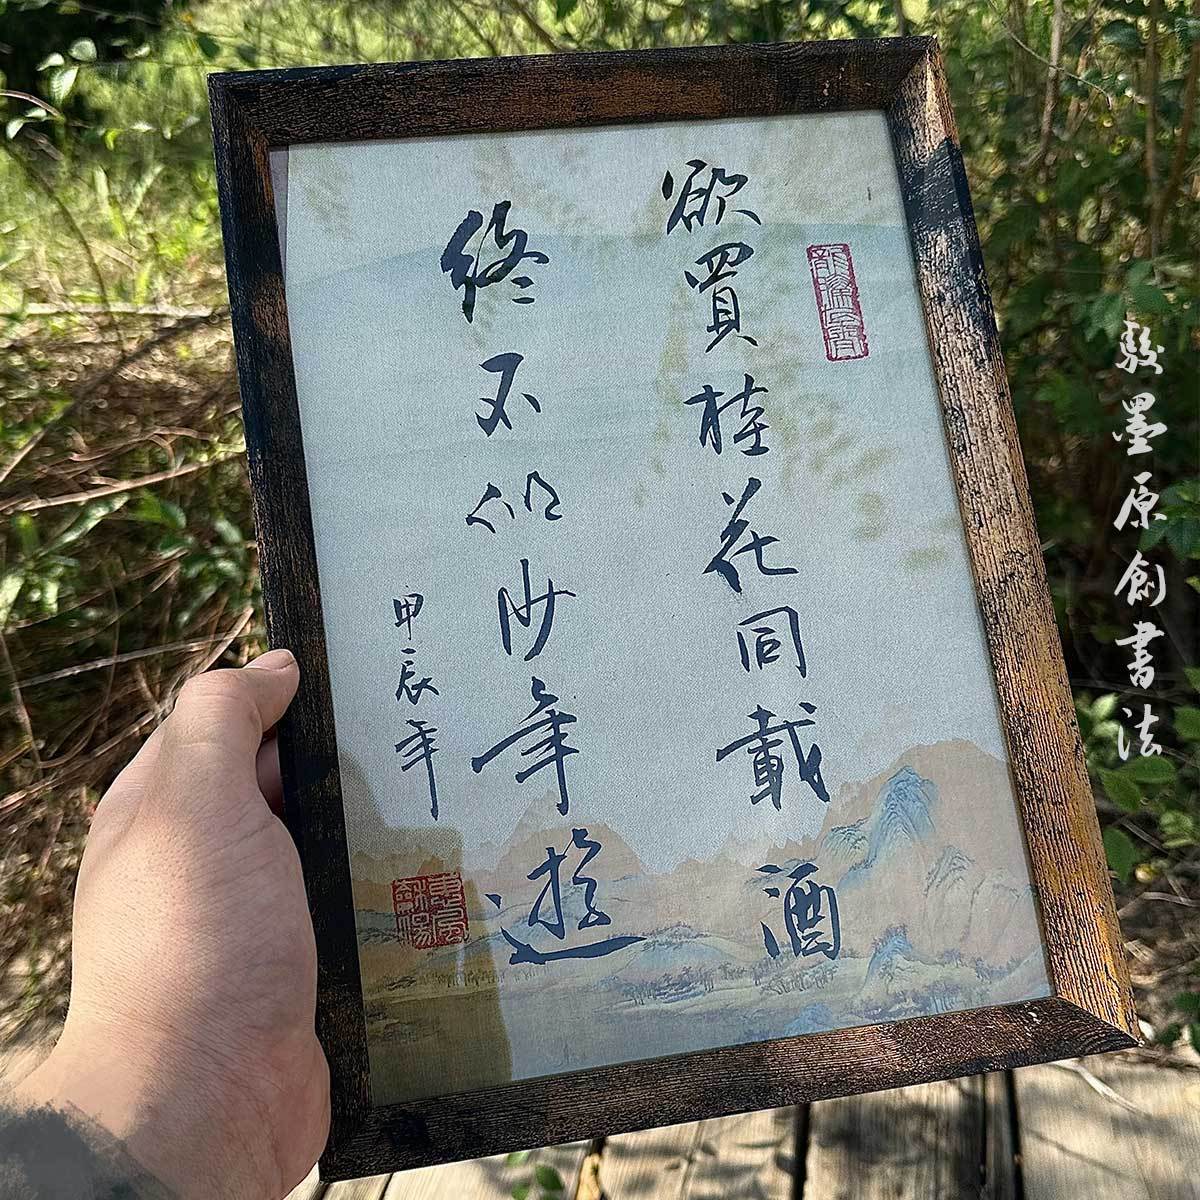 欲買桂花同載酒
終不似少年遊
甲辰年
駿墨原創書法